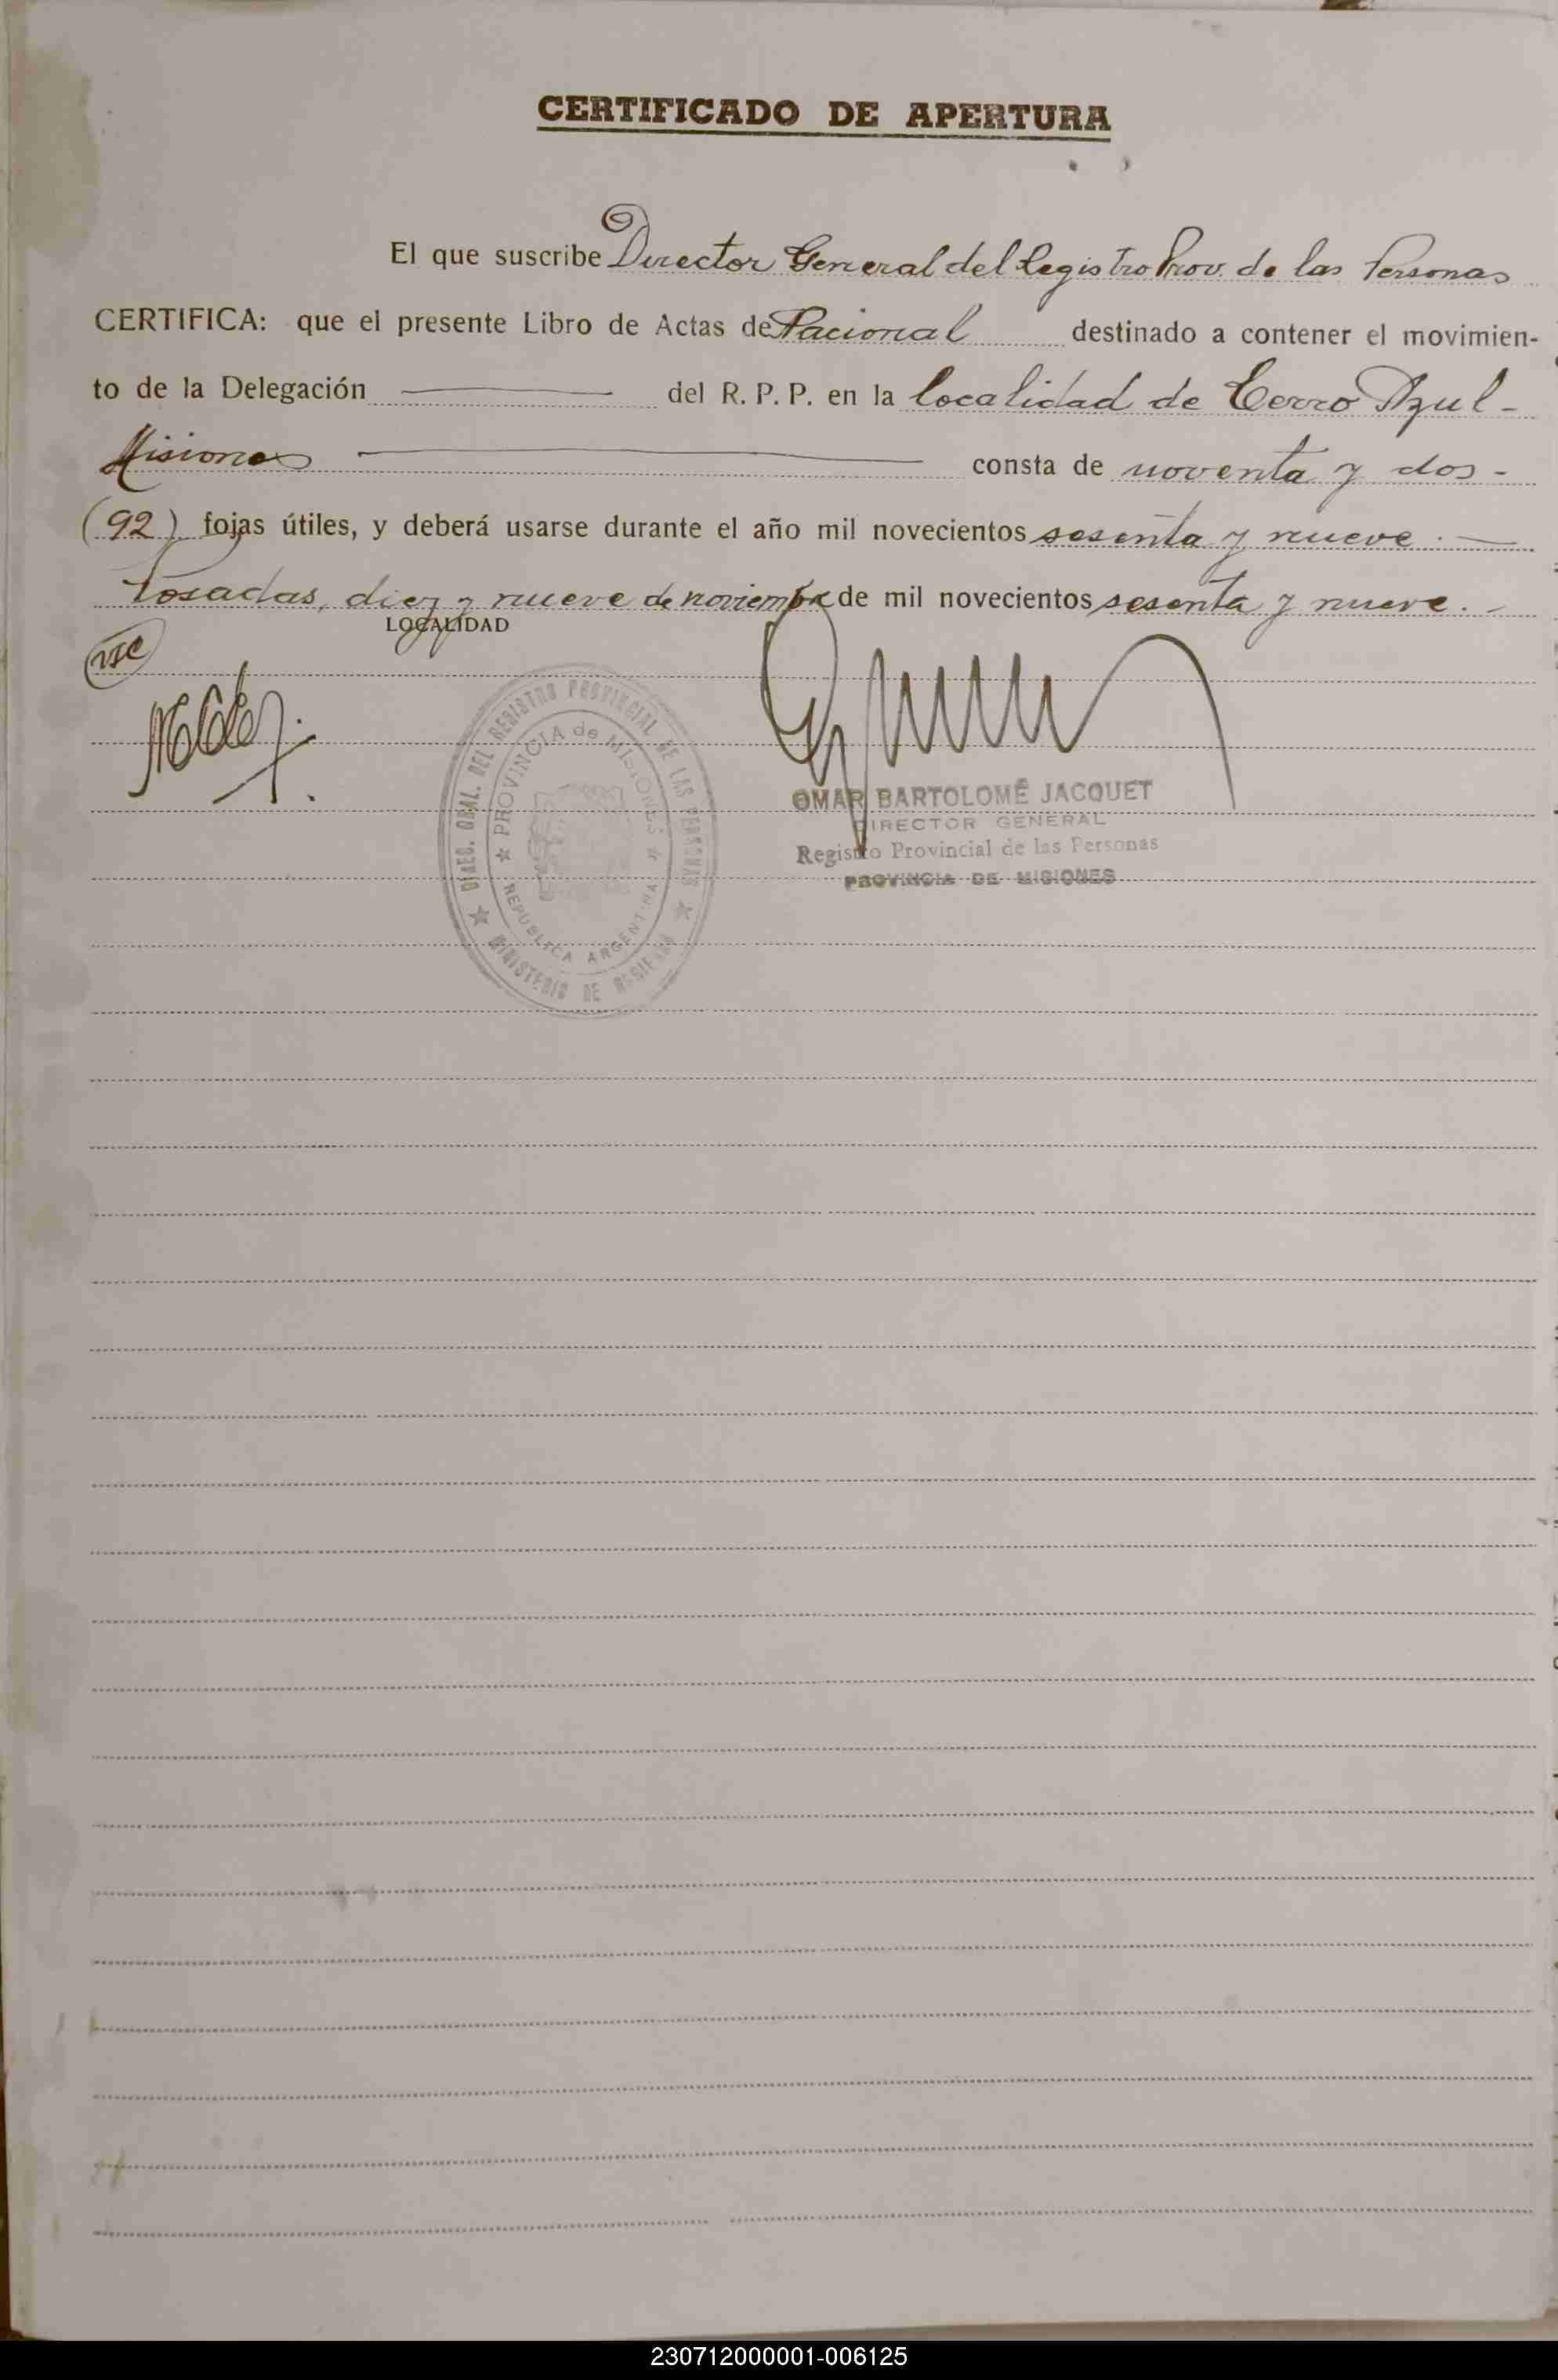 CERTIFICADO DE APERTURA
El que suscribe Director General del Registro Prov. de las Personas
CERTIFICA: que el presente Libro de Actas de Nacional destinado a contener el movimien-
to de la Delegación del R. P. P. en la localidad de Cerro Azul -
Misiones consta de noventa y dos -
(92) fojas útiles, y deberá usarse durante el año mil novecientos sesenta y nueve . -
Posadas, diez y nueve de noviembre de mil novecientos sesenta y nueve. -
LOCALIDAD
DIREC. GRAL. DEL REGISTRO PROVINCIAL DE LAS PERSONAS
PROVINCIA de MISIONES
REPUBLICA ARGENTINA
MINISTERIO DE
OMAR BARTOLOMÉ JACQUET
DIRECTOR GENERAL
Registro Provincial de las Personas
PROVINCIA DE MISIONES
230712000001-006125